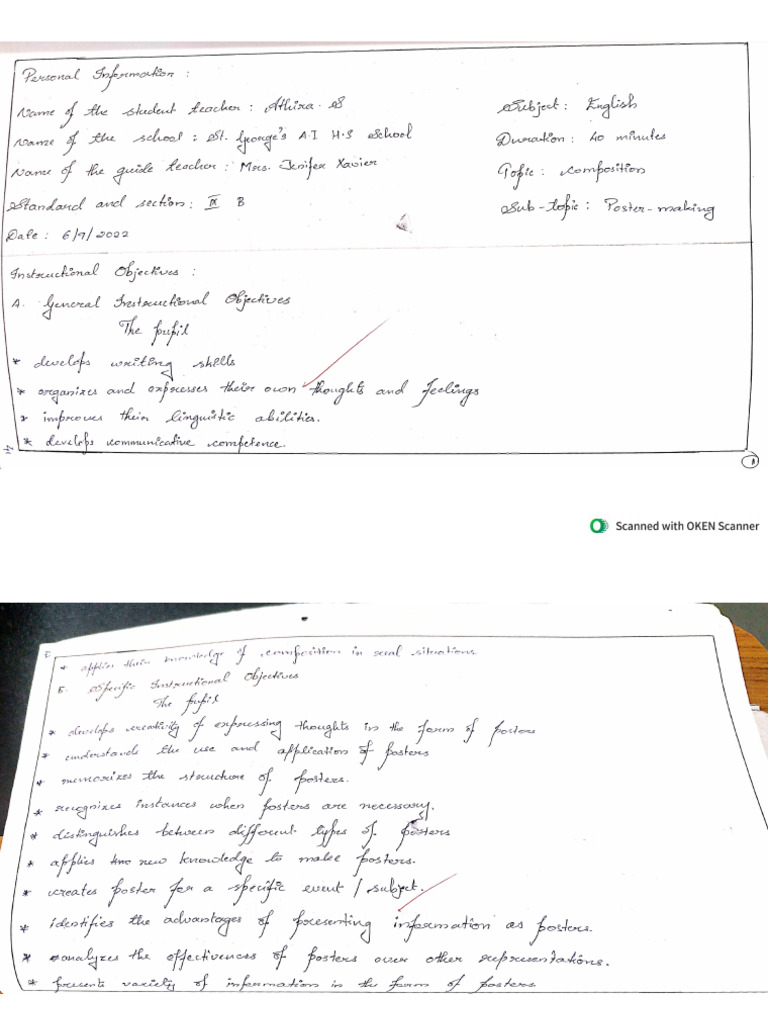 Personal Information :
Name of the student teacher : Athira. S
Subject : English
Name of the school : St. George's A.I H.S School
Duration : 40 minutes
Name of the guide teacher : Mrs. Jenifer Xavier
Topic : Composition
Standard and section : IX B
Sub-topic : Poster-making
Date : 6/9/2022
Instructional Objectives :
A. General Instructional Objectives
The pupil
* develops writing skills
* organizes and expresses their own thoughts and feelings
* improves their linguistic abilities.
* develops communicative competence.
1
Scanned with OKEN Scanner
* applies their knowledge of composition in real situations
B. Specific Instructional Objectives
The pupil
* develops creativity of expressing thoughts in the form of posters
* understands the use and application of posters
* memorizes the structure of posters.
* recognizes instances when posters are necessary.
* distinguishes between different types of posters
* applies the new knowledge to make posters.
* creates poster for a specific event / subject.
* identifies the advantages of presenting information as posters.
* analyzes the effectiveness of posters over other representations.
* presents variety of information in the form of posters